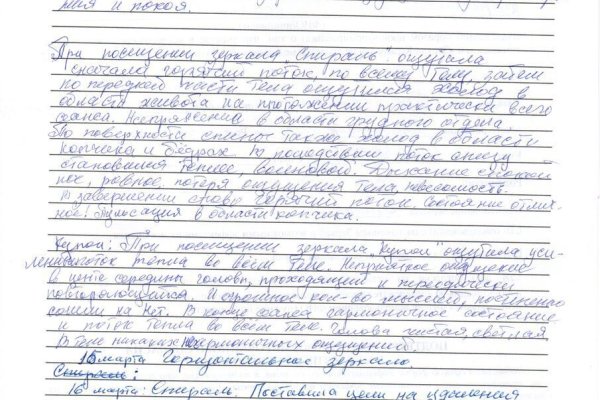 мия и покоя.
При посещении зеркала "Спираль" ощутила
сначала горячий поток, по всему телу, затем
по передней части тела ощущался холод в
области живота на протяжении практически всего
сеанса. Напряжение в области грудного отдела.
По поверхности спины также холод в области
копчика и бёдрах. В последствии поток снизу
становился теплее, волновой. Дыхание спокой
ное, ровное, потеря ощущения тела, невесомость.
В завершении снова горячий поток. Состояние отлич-
ное. Пульсация в области копчика.
Купол: При посещении зеркала "Купол" ощутила уси-
ление поток тепла во всём теле. Неприятное ощущение
в центе середины головы, проходящий и переодически
повторяющийся. И огромное кол-во мыслей, постепенно
сошли на нет. В конце сеанса гармоничное состояние
и поток тепла во всём теле. Голова чистая, светлая,
В теле никаких негармоничных ощущений.
15 марта Горизонтальное зеркало.
Спираль:
16 марта: Спираль. Поставила цели на удаления